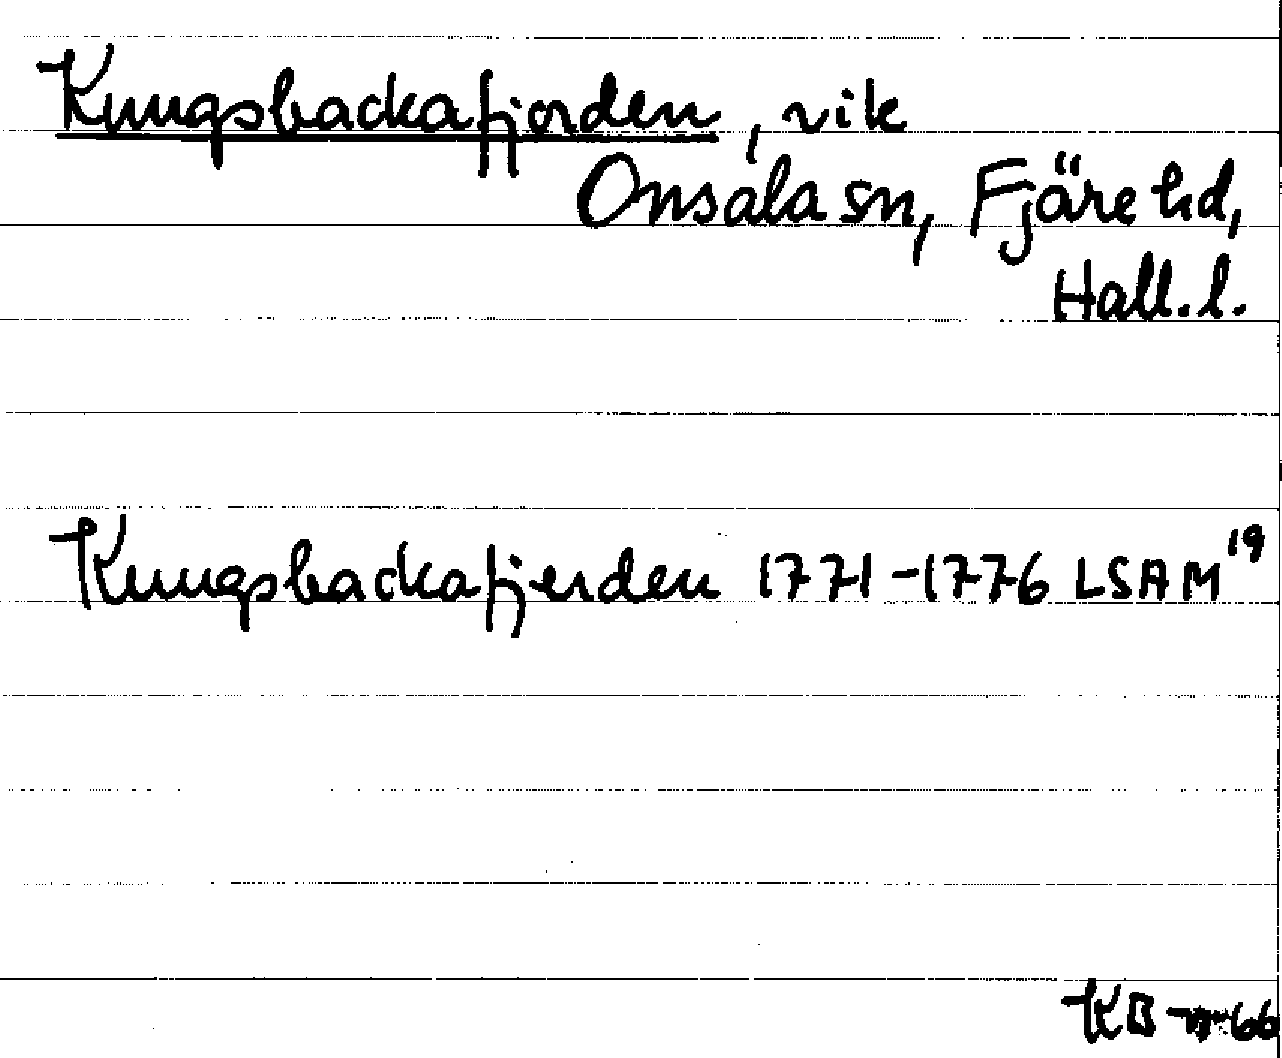 Kungsbackafjorden, vik
Onsala sn, Fjäre hd,
Hall.l.
Kungsbackafjerden 1771-1776 LSAM 19
KB 66